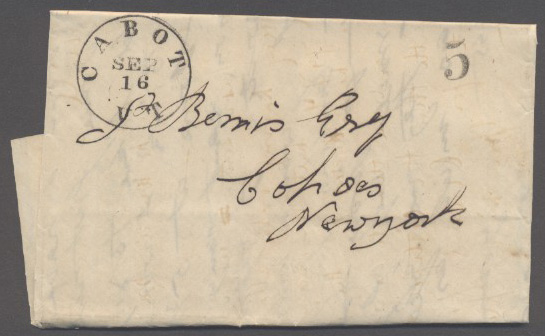 CABOT
SEP
16
VT
5
J Bemis Esq
Cohoes
Newyork